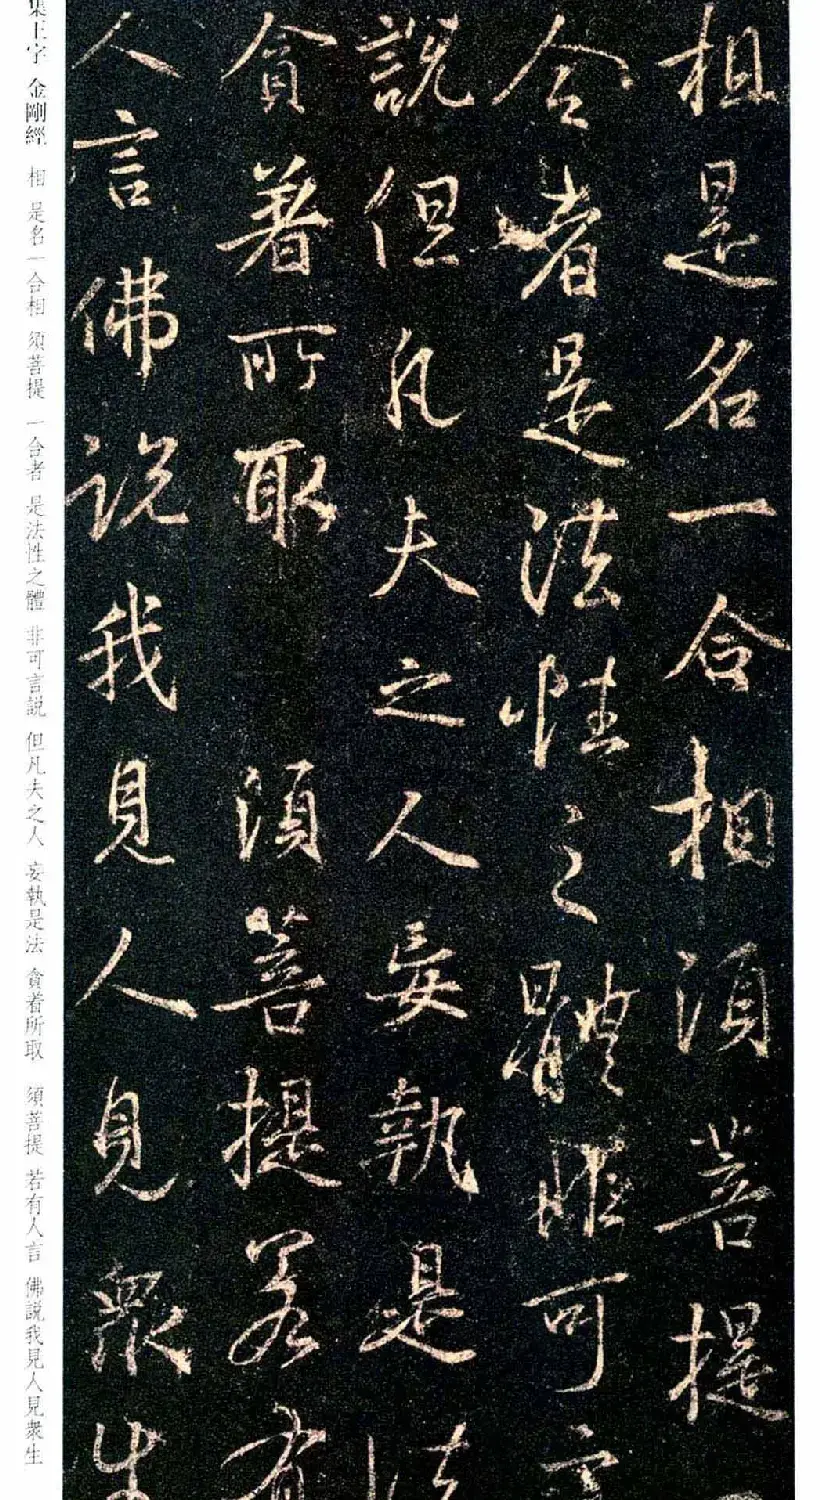 相是名一合相須菩提一
合者是法性之體非可言
說但凡夫之人妄執是法
貪著所取 須菩提若有
人言佛說我見人見眾生
集王字 金剛經 相 是名一合相 須菩提 一合者 是法性之體 非可言説 但凡夫之人 妄執是法 貪着所取 須菩提 若有人言 佛説我見人見衆生